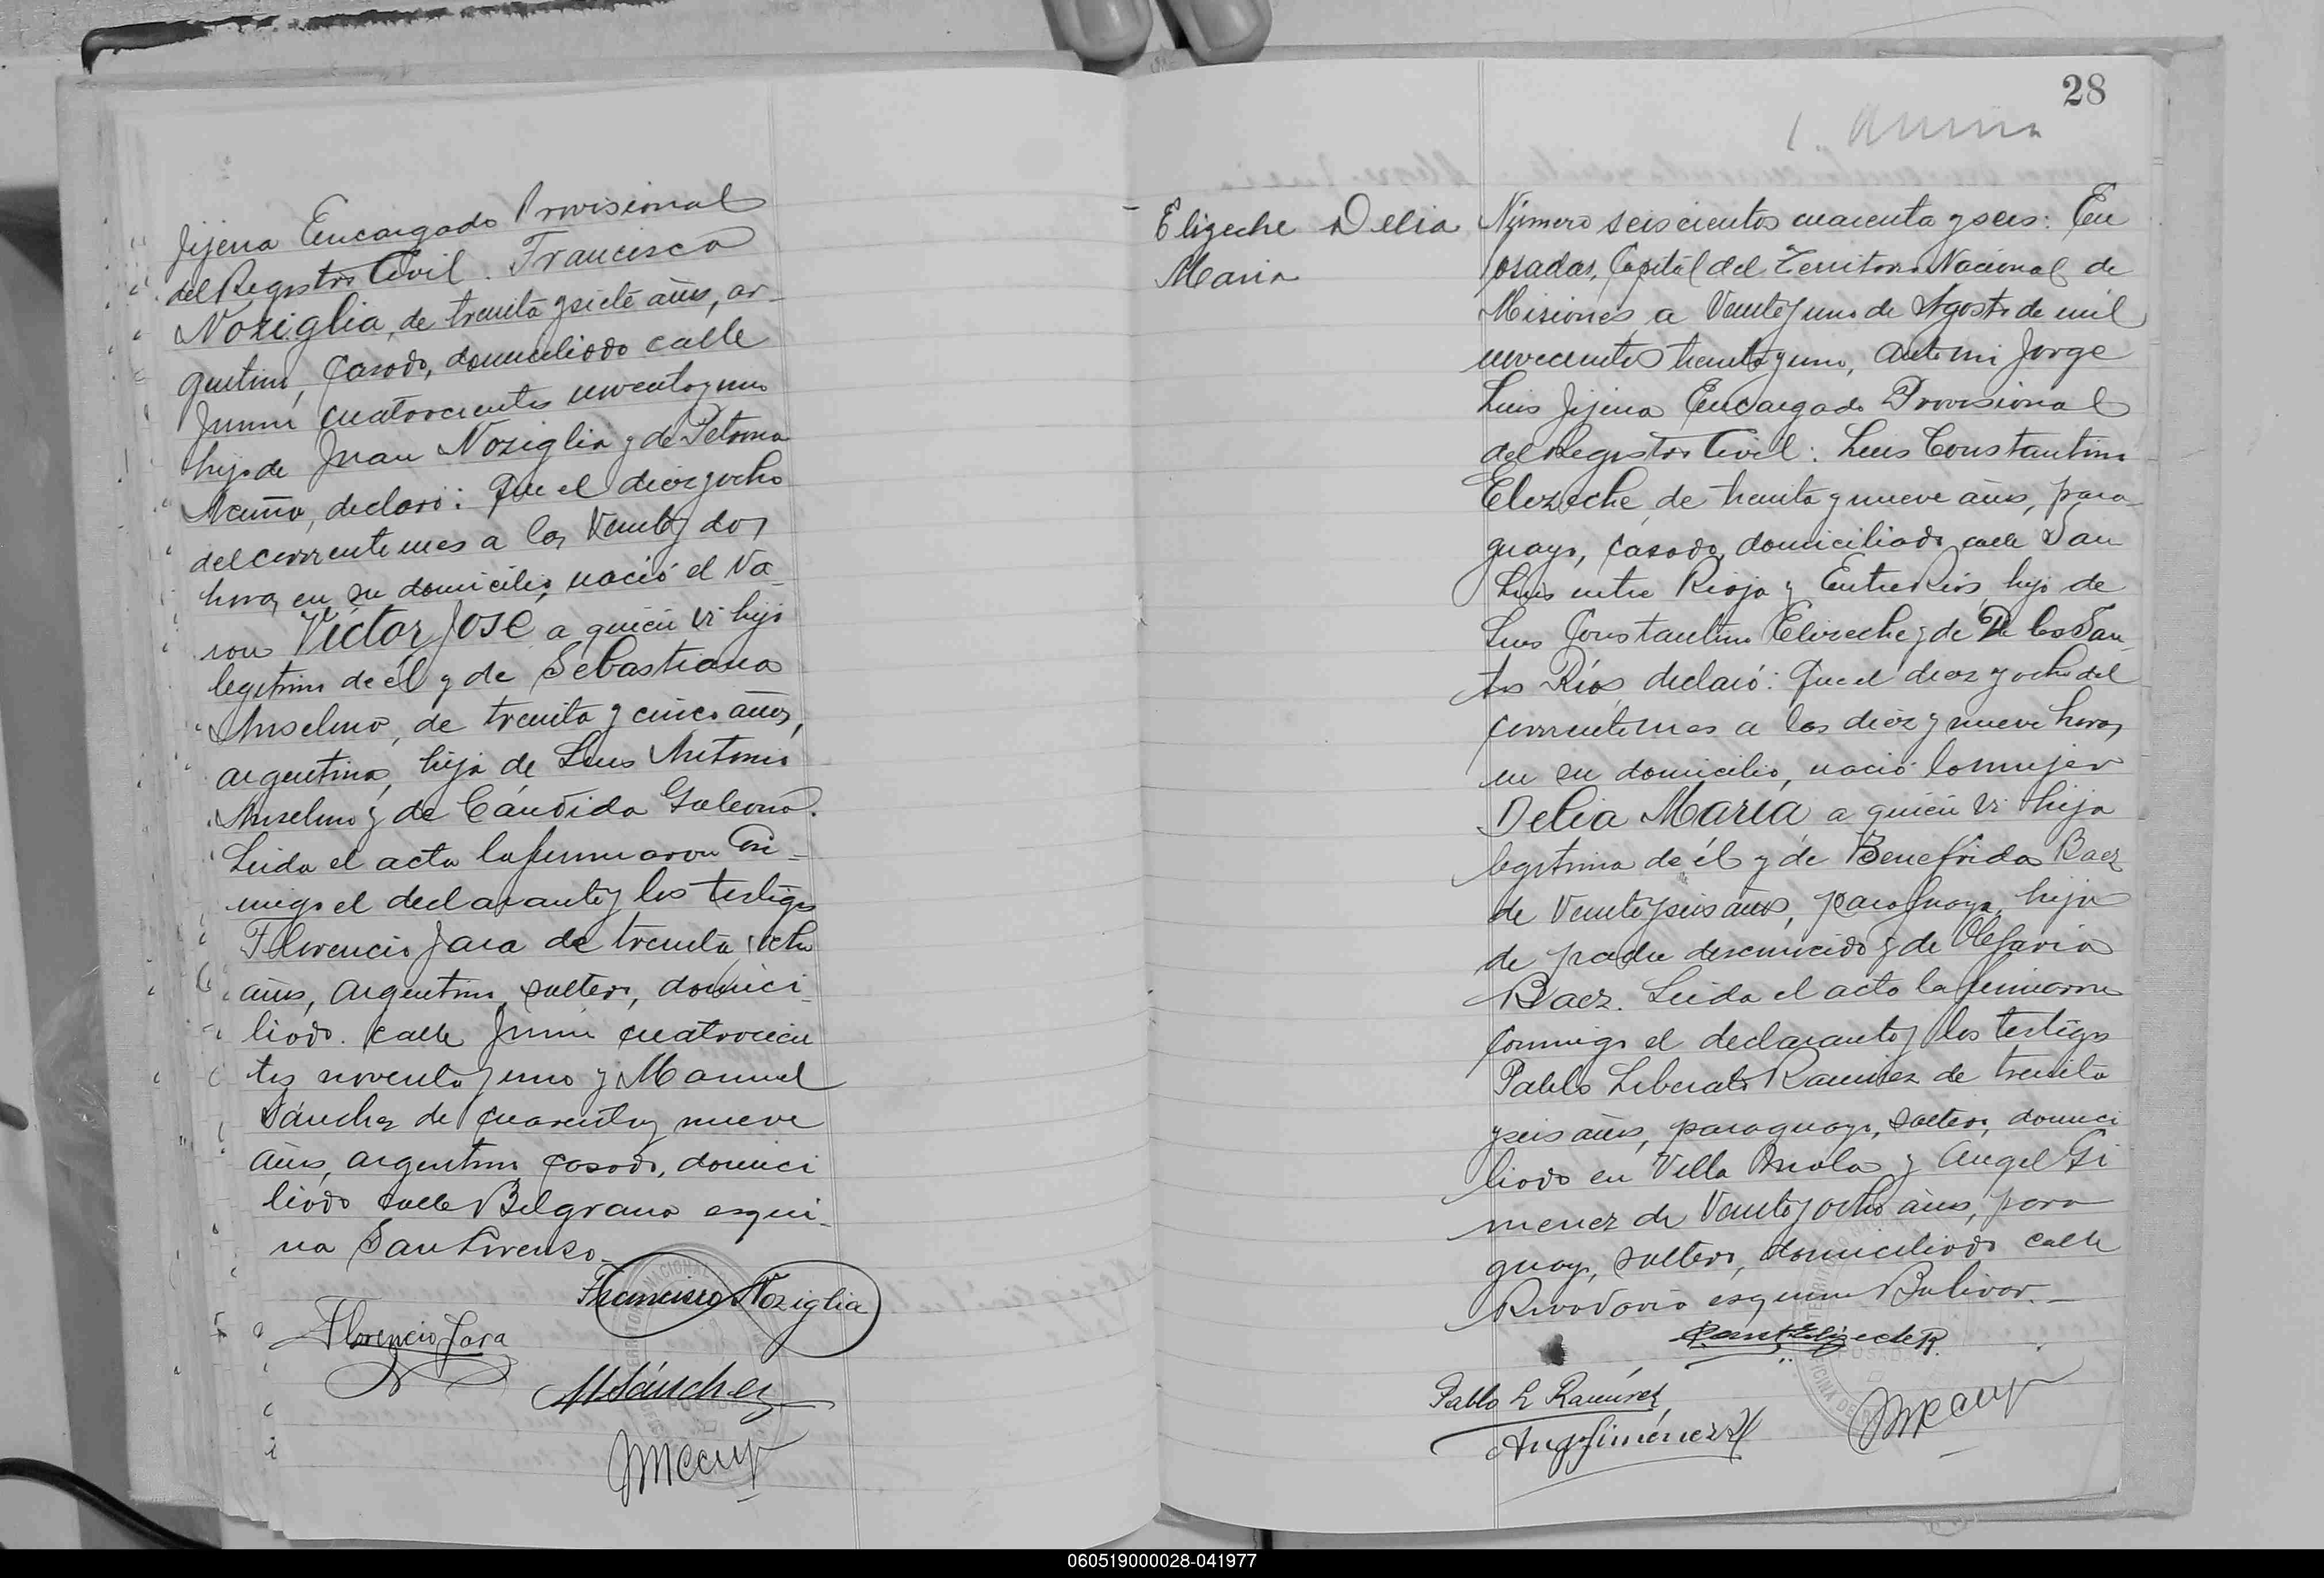 Jijena Encargado Provisional
del Registro Civil. Francisco
Noziglia, de treinta y siete años, ar-
gentino, casado, domiciliado calle
Junin cuatrocientos noventa y uno
hijo de Juan Noziglia y de Petrona
Acuña, declaró: Que el diez y ocho
del corriente mes a las Veinte y dos
horas, en su domicilio, nació el Va-
ron Víctor José a quien vi hijo
legitimo de él y de Sebastiana
Anselmo, de treinta y cinco años,
argentina, hija de Luis Antonio
Anselmo y de Cándida Galeano.
Leida el acta la firmaron con-
migo el declarante y los testigos
Florencio Jara de treinta y ocho
años, argentino, soltero, domici-
liado calle Junin cuatrocien
tos noventa y uno y Manuel
Sánchez de cuarenta y nueve
años, argentino casado, domici
liado calle Belgrano esqui-
na San Lorenzo.
Francisco Noziglia
Florencio Jara
M Sánchez
28
Elizeche Delia
Maria
Número seiscientos cuarenta y seis: En
Posadas, Capital del Territorio Nacional de
Misiones, a Veinte y uno de Agosto de mil
novecientos treinta y uno, ante mi Jorge
Luis Jijena Encargado Provisional
del Registro Civil: Luis Constantino
Elizeche, de treinta y nueve años, para-
guayo, casado, domiciliado calle San
Luis entre Rioja y Entre Rios, hijo de
Luis Constantino Elizeche y de De los San-
tos Ríos, declaró: Que el diez y ocho del
corriente mes a las diez y nueve horas,
en su domicilio, nació la mujer
Delia María a quien vi hija
legitima de él y de Benefrida Baez
de Veinte y seis años, paraguaya, hija
de padre desconocido y de Olegaria
Baez. Leida el acta la firmaron
conmigo el declarante y los testigos
Pablo Liberato Ramirez de treinta
y seis años, paraguayo, soltero, domici
liado en Villa Mola y Angel Gi
menez de Veinte y ocho años, para
guayo, soltero, domiciliado calle
Rivadavia esquina Bolivar.
Const Elizeche R.
Pablo L Ramírez
Ang Giménez
060519000028-041977